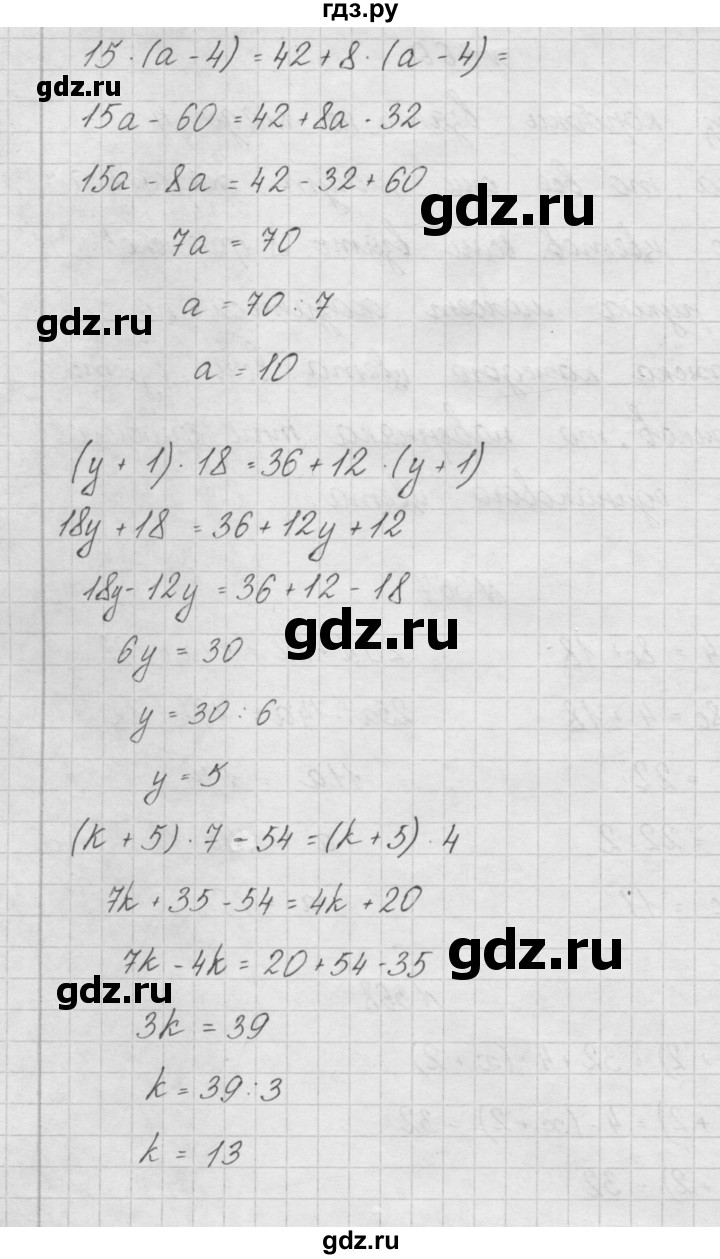 гдз.ру
15 · (a - 4) = 42 + 8 · (a - 4) =
gdz.ru
15a - 60 = 42 + 8a - 32
15a - 8a = 42 - 32 + 60
gdz.ru
7a = 70
a = 70 : 7
gdz.ru
a = 10
(y + 1) · 18 = 36 + 12 · (y + 1)
18y + 18 = 36 + 12y + 12
18y - 12y = 36 + 12 - 18
gdz.ru
6y = 30
y = 30 : 6
y = 5
(k + 5) · 7 - 54 = (k + 5) · 4
7k + 35 - 54 = 4k + 20
gdz.ru
7k - 4k = 20 + 54 - 35
gdz.ru
3k = 39
k = 39 : 3
k = 13
gdz.ru